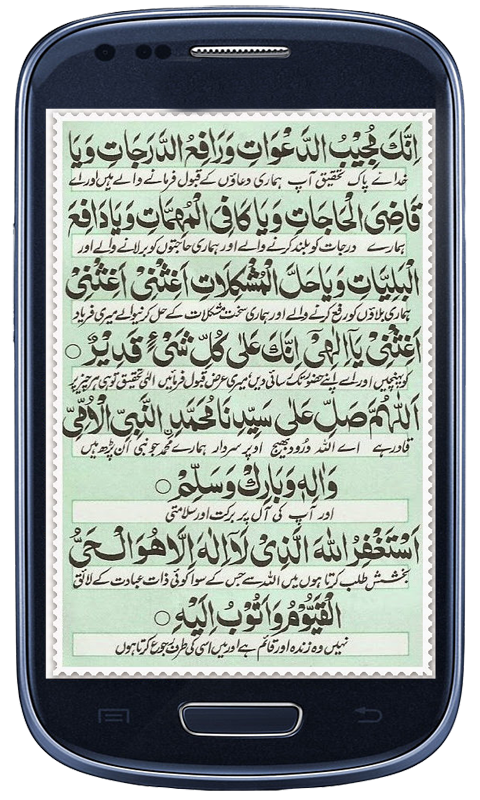 اِنَّكَ مُجِيْبُ الدَّعْوَاتِ وَرَافِعُ الدَّرَجَاتِ وَيَا
خدائے پاک تحقیق آپ ہماری دعاؤں کے قبول فرمانے والے ہیں اور اے
قَاضِىَ الْحَاجَاتِ وَيَا كَافِىَ الْمُهِمَّاتِ وَيَا دَافِعَ
ہمارے درجات کو بلند کرنے والے اور ہماری حاجتوں کو برلانے والے اور
الْبَلِيَّاتِ وَيَا حَلَّ الْمُشْكِلَاتِ اَغِثْنِىْ اَغِثْنِىْ
ہماری بلاؤں کو رفع کرنے والے اور ہماری سخت مشکلات کے حل کرنیوالے میری فریاد
اَغِثْنِىْ يَآ اِلٰهِىْ اِنَّكَ عَلٰى كُلِّ شَىْءٍ قَدِيْرٌ ○
کو پہنچیں اور اے اپنے حضور تک رسائی دیں میری عرض قبول فرمائیں الٰہی تحقیق تو ہی ہر چیز پر
اَللّٰهُمَّ صَلِّ عَلٰى سَيِّدِنَا مُحَمَّدِنِ النَّبِىِّ الْاُمِّىِّ
قادر ہے اے اللہ درود بھیج اوپر سردار ہمارے محمد جو نبی ان پڑھ ہیں
وَاٰلِهٖ وَبَارِكْ وَسَلِّمْ ○
اور آپ کی آل پر برکت اور سلامتی
اَسْتَغْفِرُ اللّٰهَ الَّذِىْ لَآ اِلٰهَ اِلَّا هُوَ الْحَىُّ
بخشش طلب کرتا ہوں میں اللہ سے جس کے سوا کوئی ذات عبادت کے لائق
الْقَيُّوْمُ وَاَتُوْبُ اِلَيْهِ ○
نہیں وہ زندہ اور قائم ہے اور میں اسی کی طرف رجوع کرتا ہوں